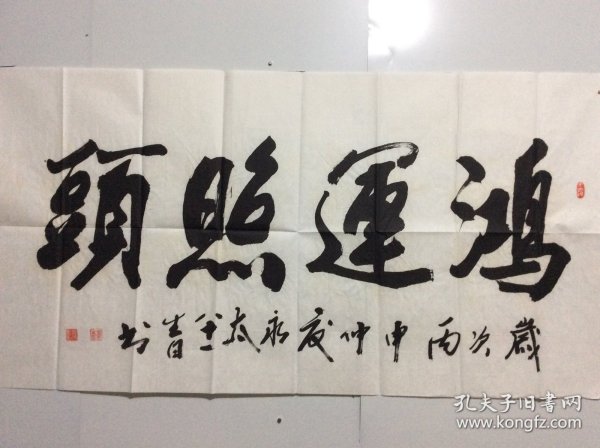 鴻運照頭
歲次丙申仲夏永太王青書
孔夫子旧書网
www.kongfz.com